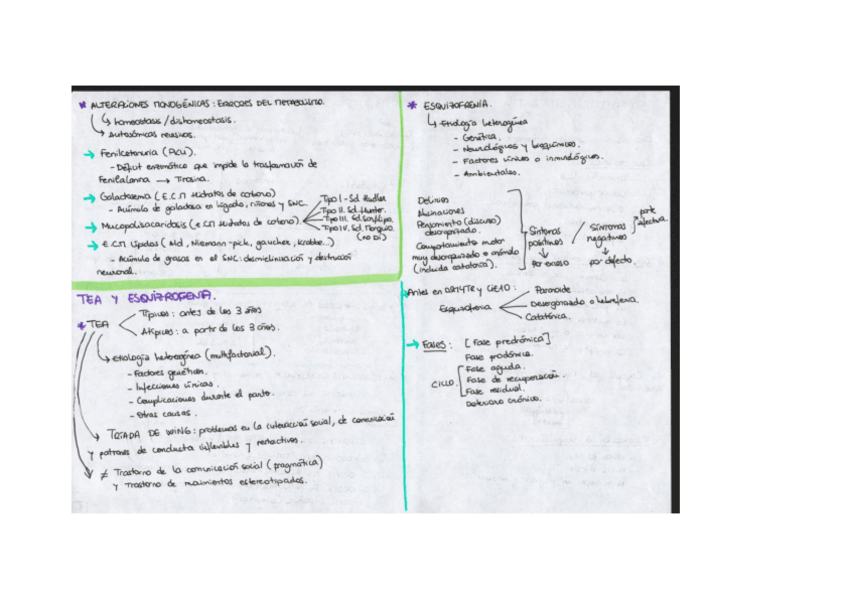 * ALTERACIONES MONOGÉNICAS: ERRORES DEL METABOLISMO.
↳ homeostasis / dishomeostasis.
↳ Autosómicas recesivas.
→ Fenilcetonuria (PKU).
- Déficit enzimático que impide la trasformación de
Fenilalanina → Tirosina.
→ Galactosemia (E.C.M hidratos de carbono)
- Acúmulo de galactosa en hígado, riñones y SNC.
→ Mucopolisacaridosis (e.C.M hidratos de carbono).
Tipo I - Sd. Hurler
Tipo II. Sd. Hunter.
Tipo III. Sd. Sanfilipo.
Tipo IV. Sd. Morquio.
(no DI)
→ E.C.M Lípidos (Niemann-pick, gaucher, krabbe...)
- Acúmulo de grasas en el SNC: desmielinización y destrucción
neuronal.
TEA Y ESQUIZOFRENIA.
* TEA
Típicos: antes de los 3 años
Atípicos: a partir de los 3 años.
↳ etiología heterogénea (multifactorial).
- Factores genéticos.
- Infecciones víricas.
- Complicaciones durante el parto.
- Otras causas.
→ TRÍADA DE WING: problemas en la interacción social, de comunicación
y patrones de conducta inflexibles y restrictivos.
≠ Trastorno de la comunicación social (pragmática)
y Trastorno de movimientos estereotipados.
* ESQUIZOFRENIA.
↳ Etiología heterogénea
- Genética.
- Neurológicos y bioquímicos.
- Factores víricos o inmunológicos.
- Ambientales.
Delirios
Alucinaciones
Pensamiento (discurso)
desorganizado.
Comportamiento motor
muy desorganizado o anómalo
(incluida catatonia).
Síntomas
positivos
↓
Por exceso
/
Síntomas
negativos
↓
por defecto.
parte
afectiva.
→ Antes en DSM-IV-TR y CIE10:
Esquizofrenia
Paranoide
Desorganizado o hebefrenia.
Catatónica.
→ Fases: [Fase premórbica]
Fase prodómica.
CICLO.
Fase aguda.
Fase de recuperación.
Fase residual.
Deterioro crónico.